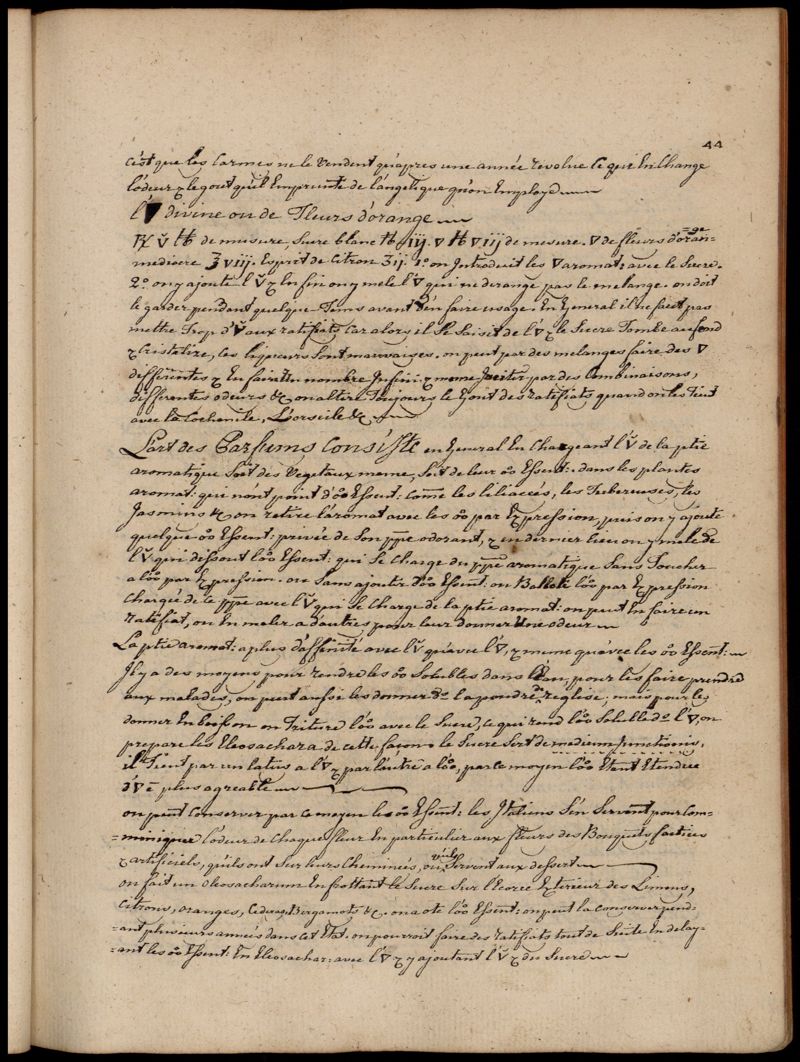 44
c'est que les Carmes ne le vendent qu'apres une année revolue ce qui En Change
l'odeur & le gout qu'il Emprunte de l'angelique qu'on Employe
l'▽ divine ou de Fleurs d'orange
℞ V̌ ℔ de mesure, Sucre blanc ℔ iij. ▽ ℔ viij de mesure. ▽ de fleurs d'oran=ge
mediocre ℥ viij. Esprit de Citron ʒ ij 1.° on Introduit les ▽ aromat: avec le Sucre.
2.° on y ajoute l'V̌ & En fin on y mele l'▽ qui ne derange pas le melange. on doit
le garder pendant quelque Tems avant d'En faire usage. En General il ne faut pas
mettre Trop d'V̌ aux ratifiats Car alors il Se Saisit de l'▽ & le Sucre Tombe au fond
& Cristalise, les liqueurs Sont mauvaises, on peut par des melanges faire des ▽
differentes & En faire un nombre Infini & meme Jmiter par des Combinaisons,
differentes odeurs &c on altere Toujours le Gout des ratifiats quand on les Teint
avec la Cochenille, L'orseille &c
L'art des Parfums Consiste en General En Chargeant l'V̌ de la ptie
aromatique Soit des Vegetaux meme, Soit de leur oo Essent: dans les plantes
aromat: qui n'ont point d'oo Essent: Come les liliacées, les Tubereuses, les
Jasmins &c on retire l'aromat avec les oo par Expression, puis on y ajoute
quelque oo Essent: privée de Son ppe odorant, & en dernier lieu on y mele de
l'V̌ qui dissout l'oo Essent: qui Se Charge du ppe aromatique Sans Toucher
a l'oo par Expression. ou Sans ajouter d'oo Essent. on Ballote l'oo par Expression
Chargée de Ce ppe avec l'V̌ qui Se Charge de la ptie aromat: on peut En faire un
ratifiat, ou En meler a d'autres pour leur donner Une odeur
La ptie aromat: a plus d'affinité avec l'V̌ qu'avec l'▽, & meme qu'avec les oo Essent:
Jl y a des moyens pour rendre les oo Solubles dans l'Eau, pour les faire prendre
aux malades, on peut aussi les donner ds la poudre de reglisse; mais pour les
donner En boisson on Triture l'oo avec le Sucre, Ce qui rend l'oo Soluble ds l'▽, on
prepare les Eleosachara de cette façon. le Sucre Sert de medium Junctionis,
il Tient par un latus a l'▽ & par l'autre a l'oo, par ce moyen l'oo Etant Etendue
d'▽ ē plus agreable
on peut Conserver par Ce moyen les oo Essent: les Italiens S'En Servent pour Com=
=muniquer l'odeur de Chaque fleur En particulier aux fleurs des Bouquets factices
& artificiels, qu'ils ont Sur leurs Cheminées, ou qu'ils Servent aux dessert
on fait un oleosacharum En frottant le Sucre Sur l'Ecorce Exterieur des Limons,
Citrons, oranges, Cedras, Bergamots &c. on a ote l'oo Essent: on peut la Conserver pend=
=ant plusieurs années dans cet Etat. on pourroit faire des ratifiats tout de Suite En delay=
=ant les oo Essent: En Eleosachar: avec l'▽ & y ajoutant l'V̌ & du Sucre